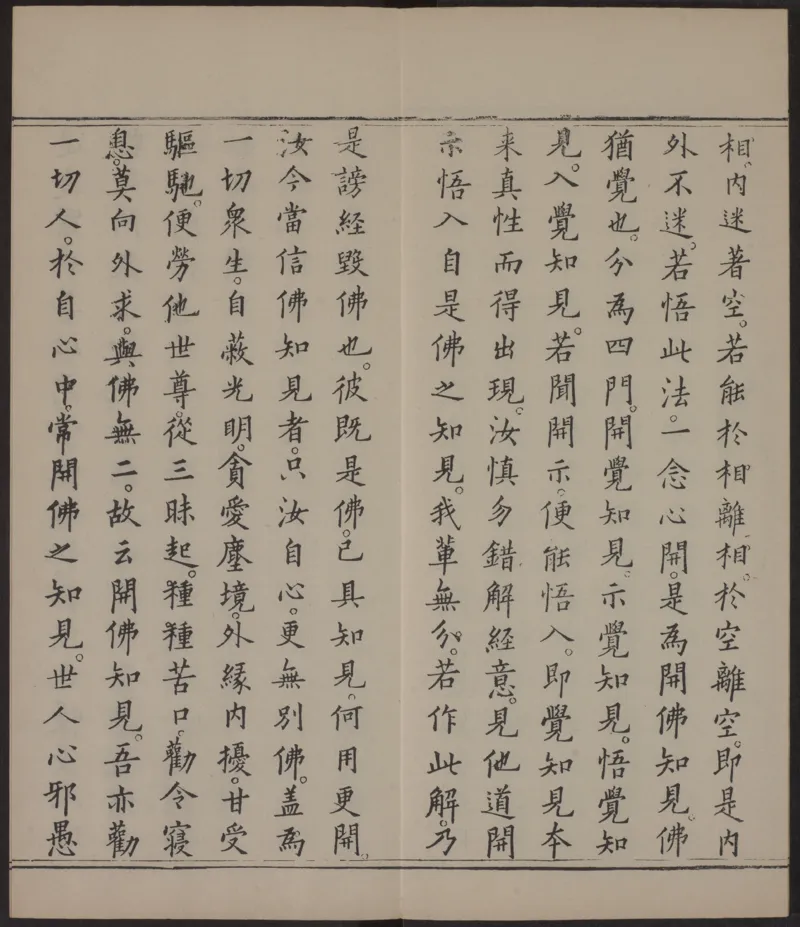 相。内迷著空。若能於相離相。於空離空。即是内
外不迷。若悟此法。一念心開。是為開佛知見。佛
猶覺也。分為四門。開覺知見。示覺知見。悟覺知
見。入覺知見。若聞開示。便能悟入。即覺知見本
来真性而得出現。汝慎勿錯解經意。見他道開
示悟入自是佛之知見。我輩無分。若作此解。乃
是謗經毀佛也。彼既是佛。已具知見。何用更開。
汝今當信佛知見者。只汝自心。更無別佛。盖為
一切衆生。自蔽光明。貪愛塵境。外緣内擾。甘受
驅馳。便勞他世尊。從三昧起。種種苦口。勸令寢
息。莫向外求。與佛無二。故云開佛知見。吾亦勸
一切人。於自心中。常開佛之知見。世人心邪愚